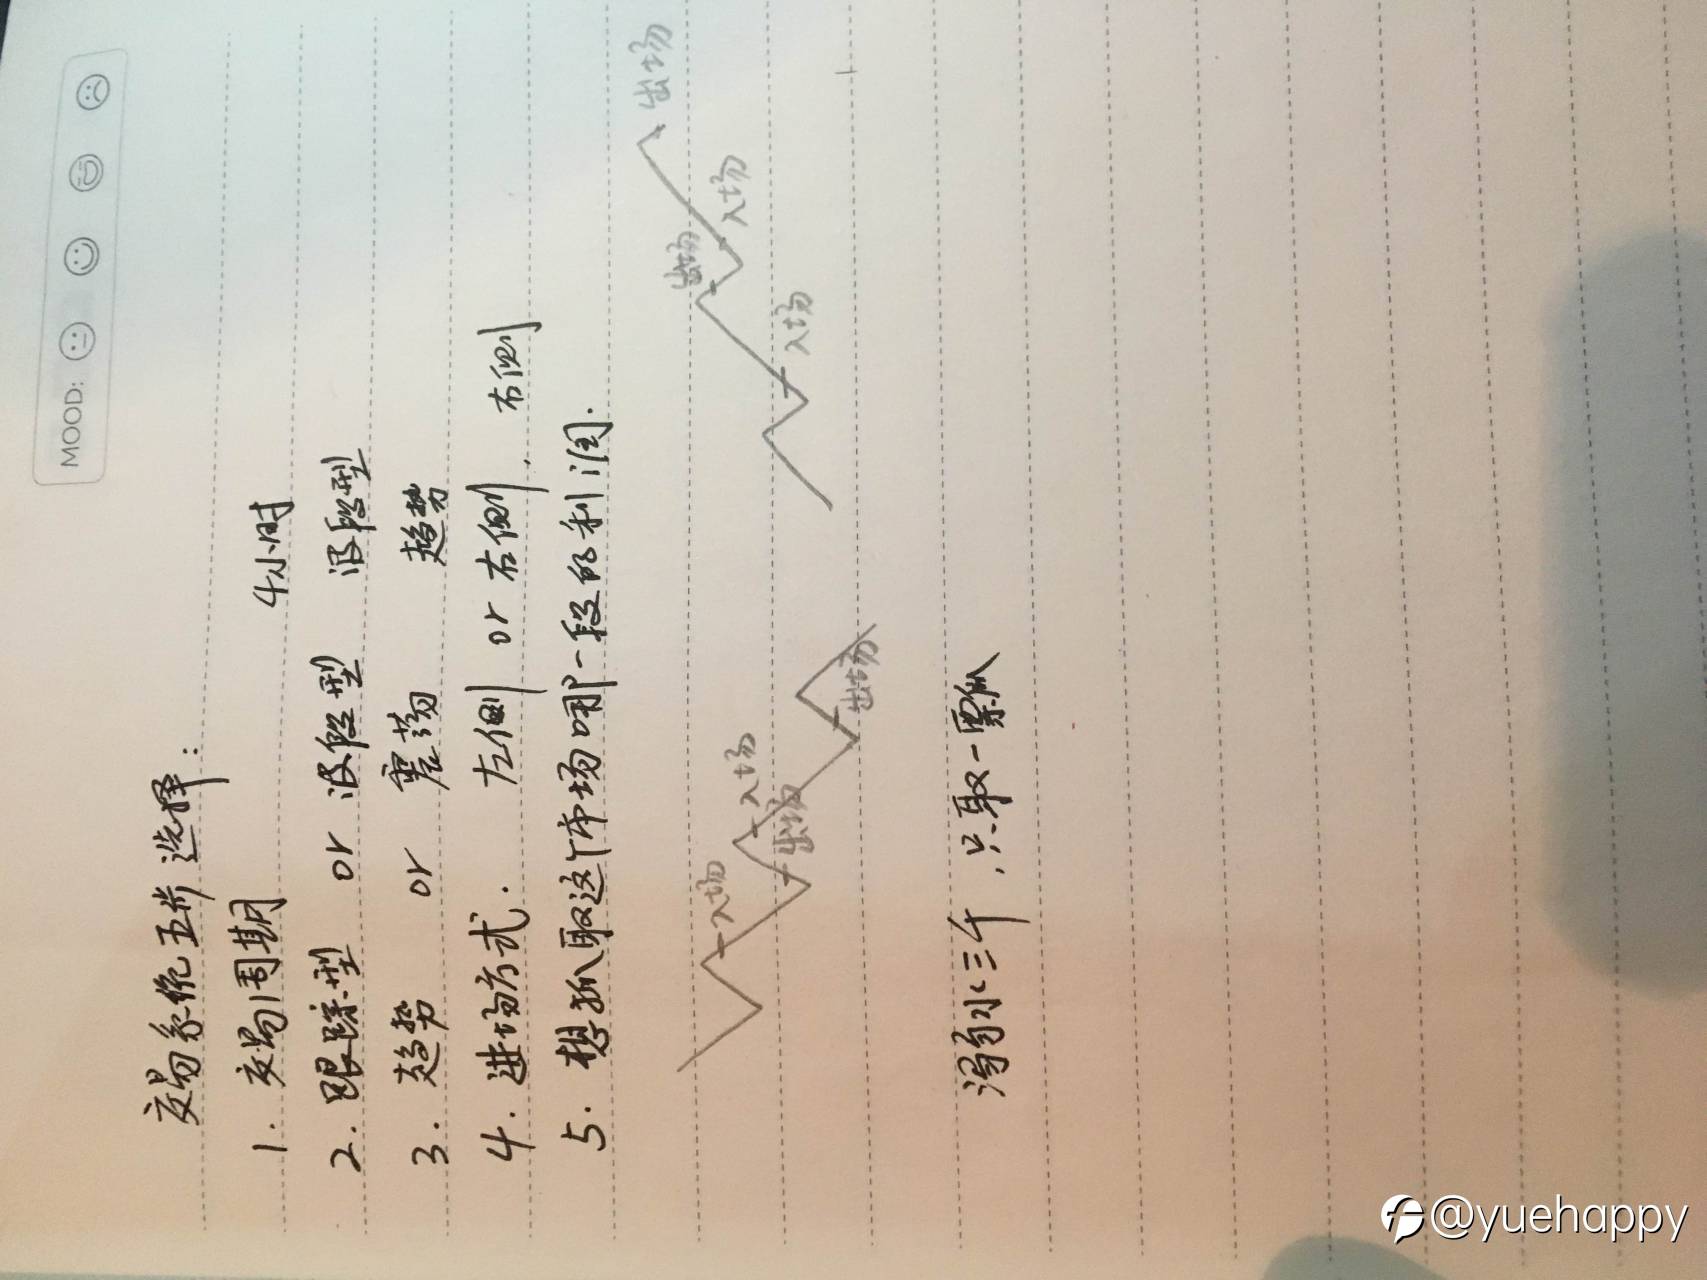 MOOD:
交易系统五步选择:
1. 交易周期 4小时
2. 跟踪型 or 波段型 波段型
3. 趋势 or 震荡 趋势
4. 进场方式. 左侧 or 右侧. 右侧
5. 想抓取这个市场哪一段的利润.
入场
入场
出场
出场
入场
出场
入场
出场
溺水三千,只取一瓢
@yuehappy